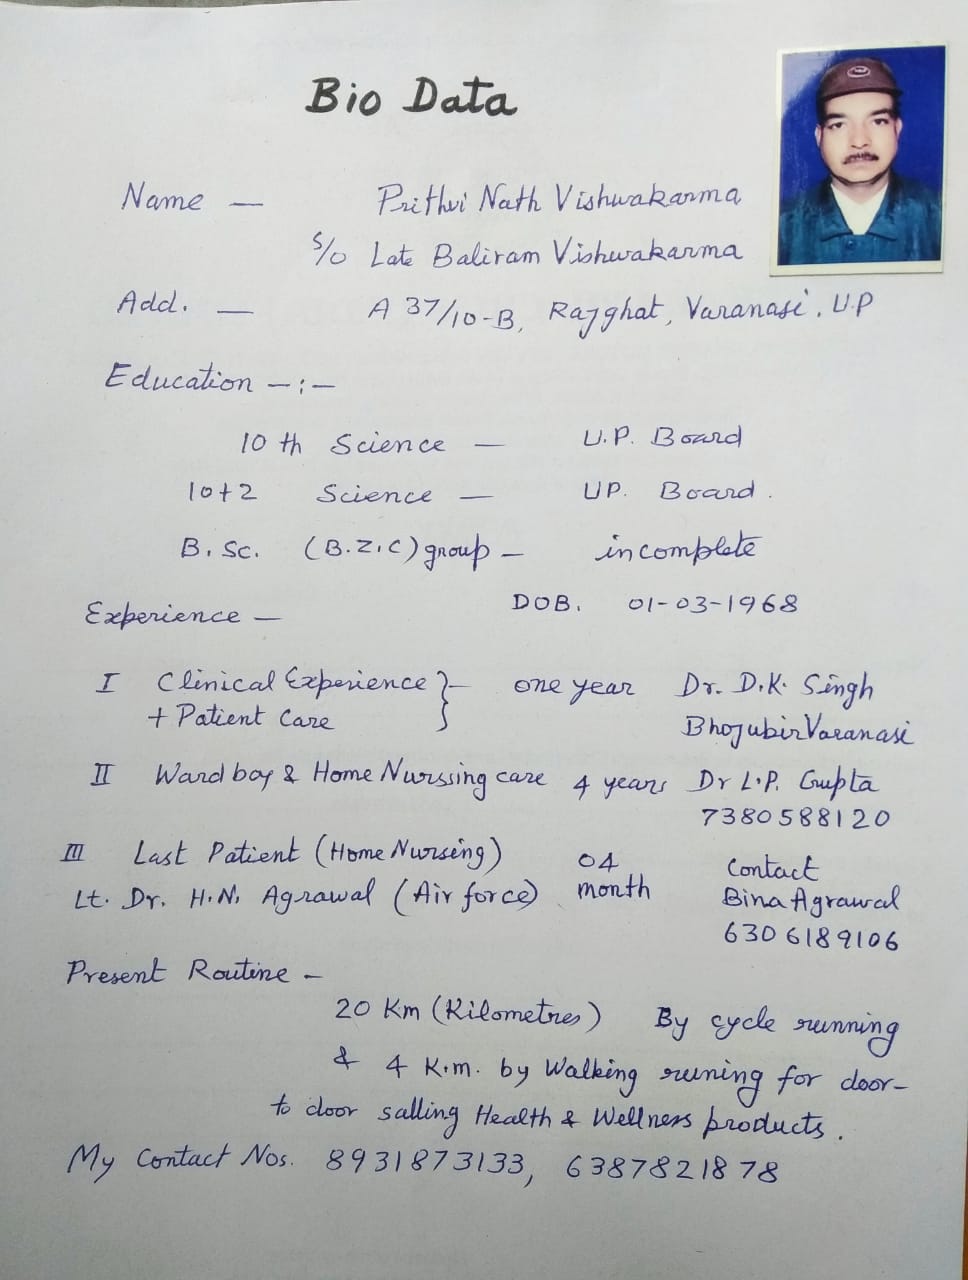 Bio Data
Name — Prithvi Nath Vishwakarma
S/o Late Baliram Vishwakarma
Add. — A 37/10-B, Rajghat, Varanasi, U.P
Education -:-
10 th Science — U.P. Board
10+2 Science — UP. Board.
B. Sc. (B.Z.C) group - incomplete
DOB. 01-03-1968
Experience —
I Clinical Experience }- one year Dr. D.K. Singh
+ Patient Care Bhojubir Varanasi
II Ward boy & Home Nurssing care 4 years Dr L.P. Gupta
7380588120
III Last Patient (Home Nursing) 04 Contact
Lt. Dr. H.N. Agrawal (Air force) month Bina Agrawal
6306189106
Present Routine -
20 Km (Kilometres) By cycle running
& 4 K.m. by Walking runing for door-
to door salling Health & Wellness products.
My Contact Nos. 8931873133, 6387821878